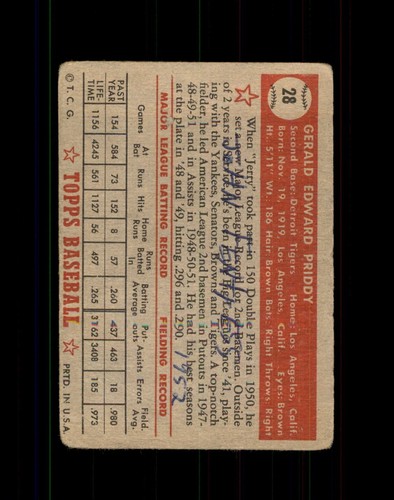 28
GERALD EDWARD PRIDDY
Second Base-Detroit Tigers Home: Los Angeles, Calif.
Born: Nov. 19, 1919, Los Angeles, Calif. Eyes: Brown
Ht. 5'11" Wt. 186 Hair: Brown Bats: Right Throws: Right
When "Jerry" took part in 150 Double Plays in 1950, he
set a new Major League Record for 2nd Basemen. Outside
of 2 years in Service, he's been in the Big Leagues since '41, play-
ing with the Yankees, Senators, Browns and Tigers. A top-notch
fielder, he led American League 2nd basemen in Putouts in 1947-
48-49-51 and in Assists in 1948-50-51. He had his best seasons
at the plate in '48 and '49, hitting .296 and .290.
1952
MAJOR LEAGUE BATTING RECORD FIELDING RECORD
Games At Bat Runs Hits Home Runs Runs Batted Batting Average Put-outs Assists Errors Field. Avg.
PAST YEAR 154 584 73 152 8 57 .260 437 463 18 .980
LIFE-TIME 1156 4245 561 1127 56 497 .265 3162 3408 185 .973
© T. C. G. TOPPS BASEBALL PRTD. IN U.S.A.